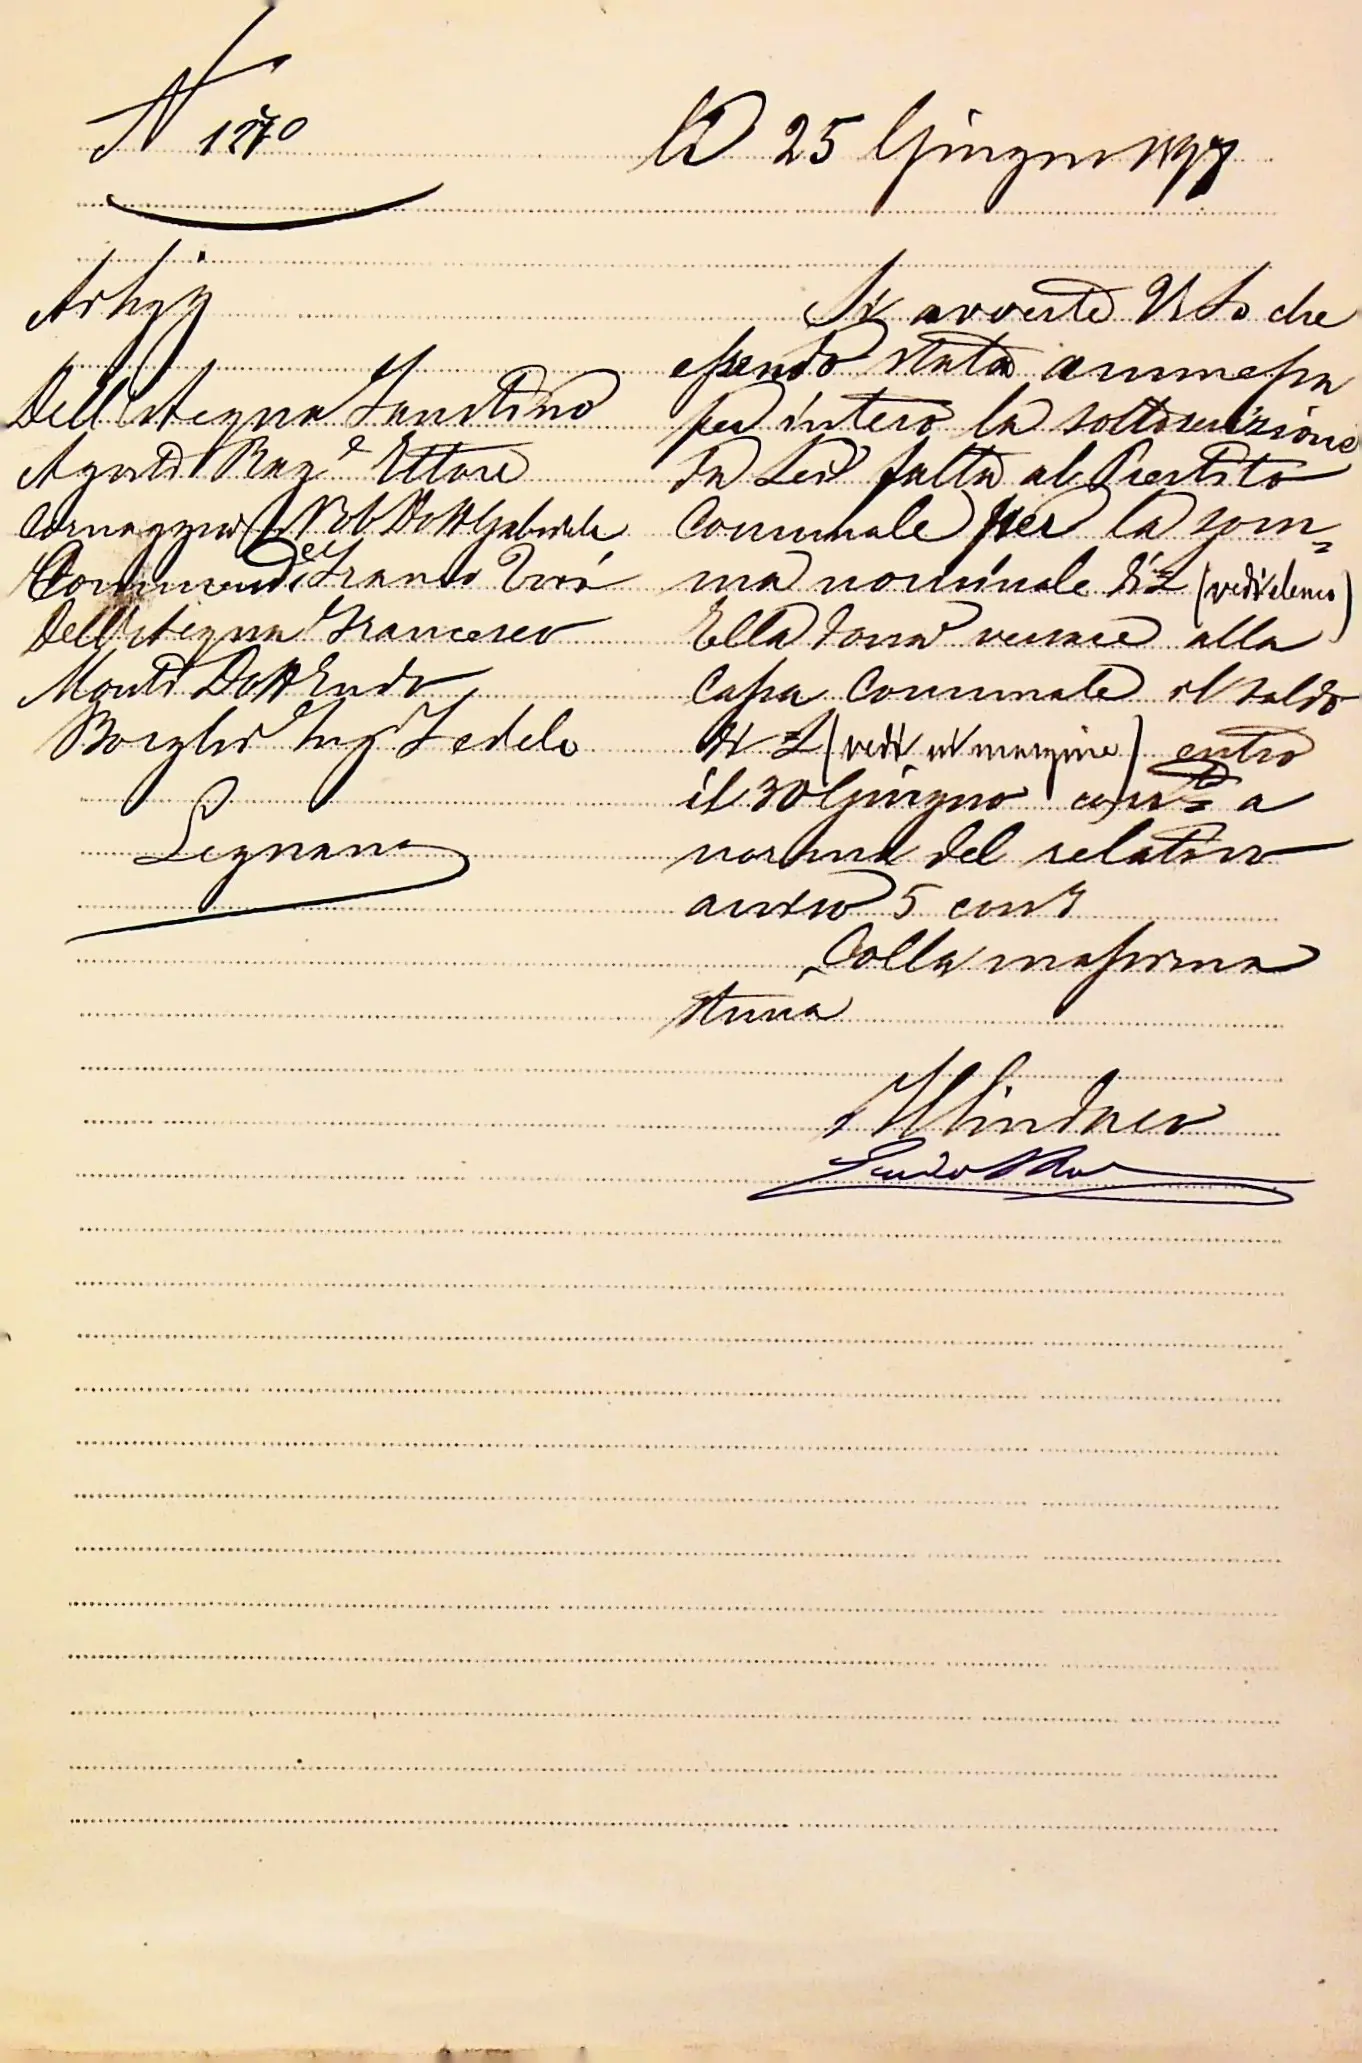 N 1270
li 25 Giugno 1898
Dell'Acqua Faustino
Agosti Rag.e Ettore
Cornaggia Nob Dott Gabriele
Dell'Acqua Francesco
Monti Dott Ludo
Borghi Ing Fedele
Legnano
Si avverte V S che
essendo stata ammessa
per intero la sottoscrizione
da Lei fatta al Prestito
Comunale per la som-
ma nominale di L (vedi elenco)
Ella dovrà versare alla
Cassa Comunale il saldo
di L (vedi in margine) entro
il 30 Giugno corrte a
norma del relativo
avviso 5 corrt
Colla massima
stima
Il Sindaco